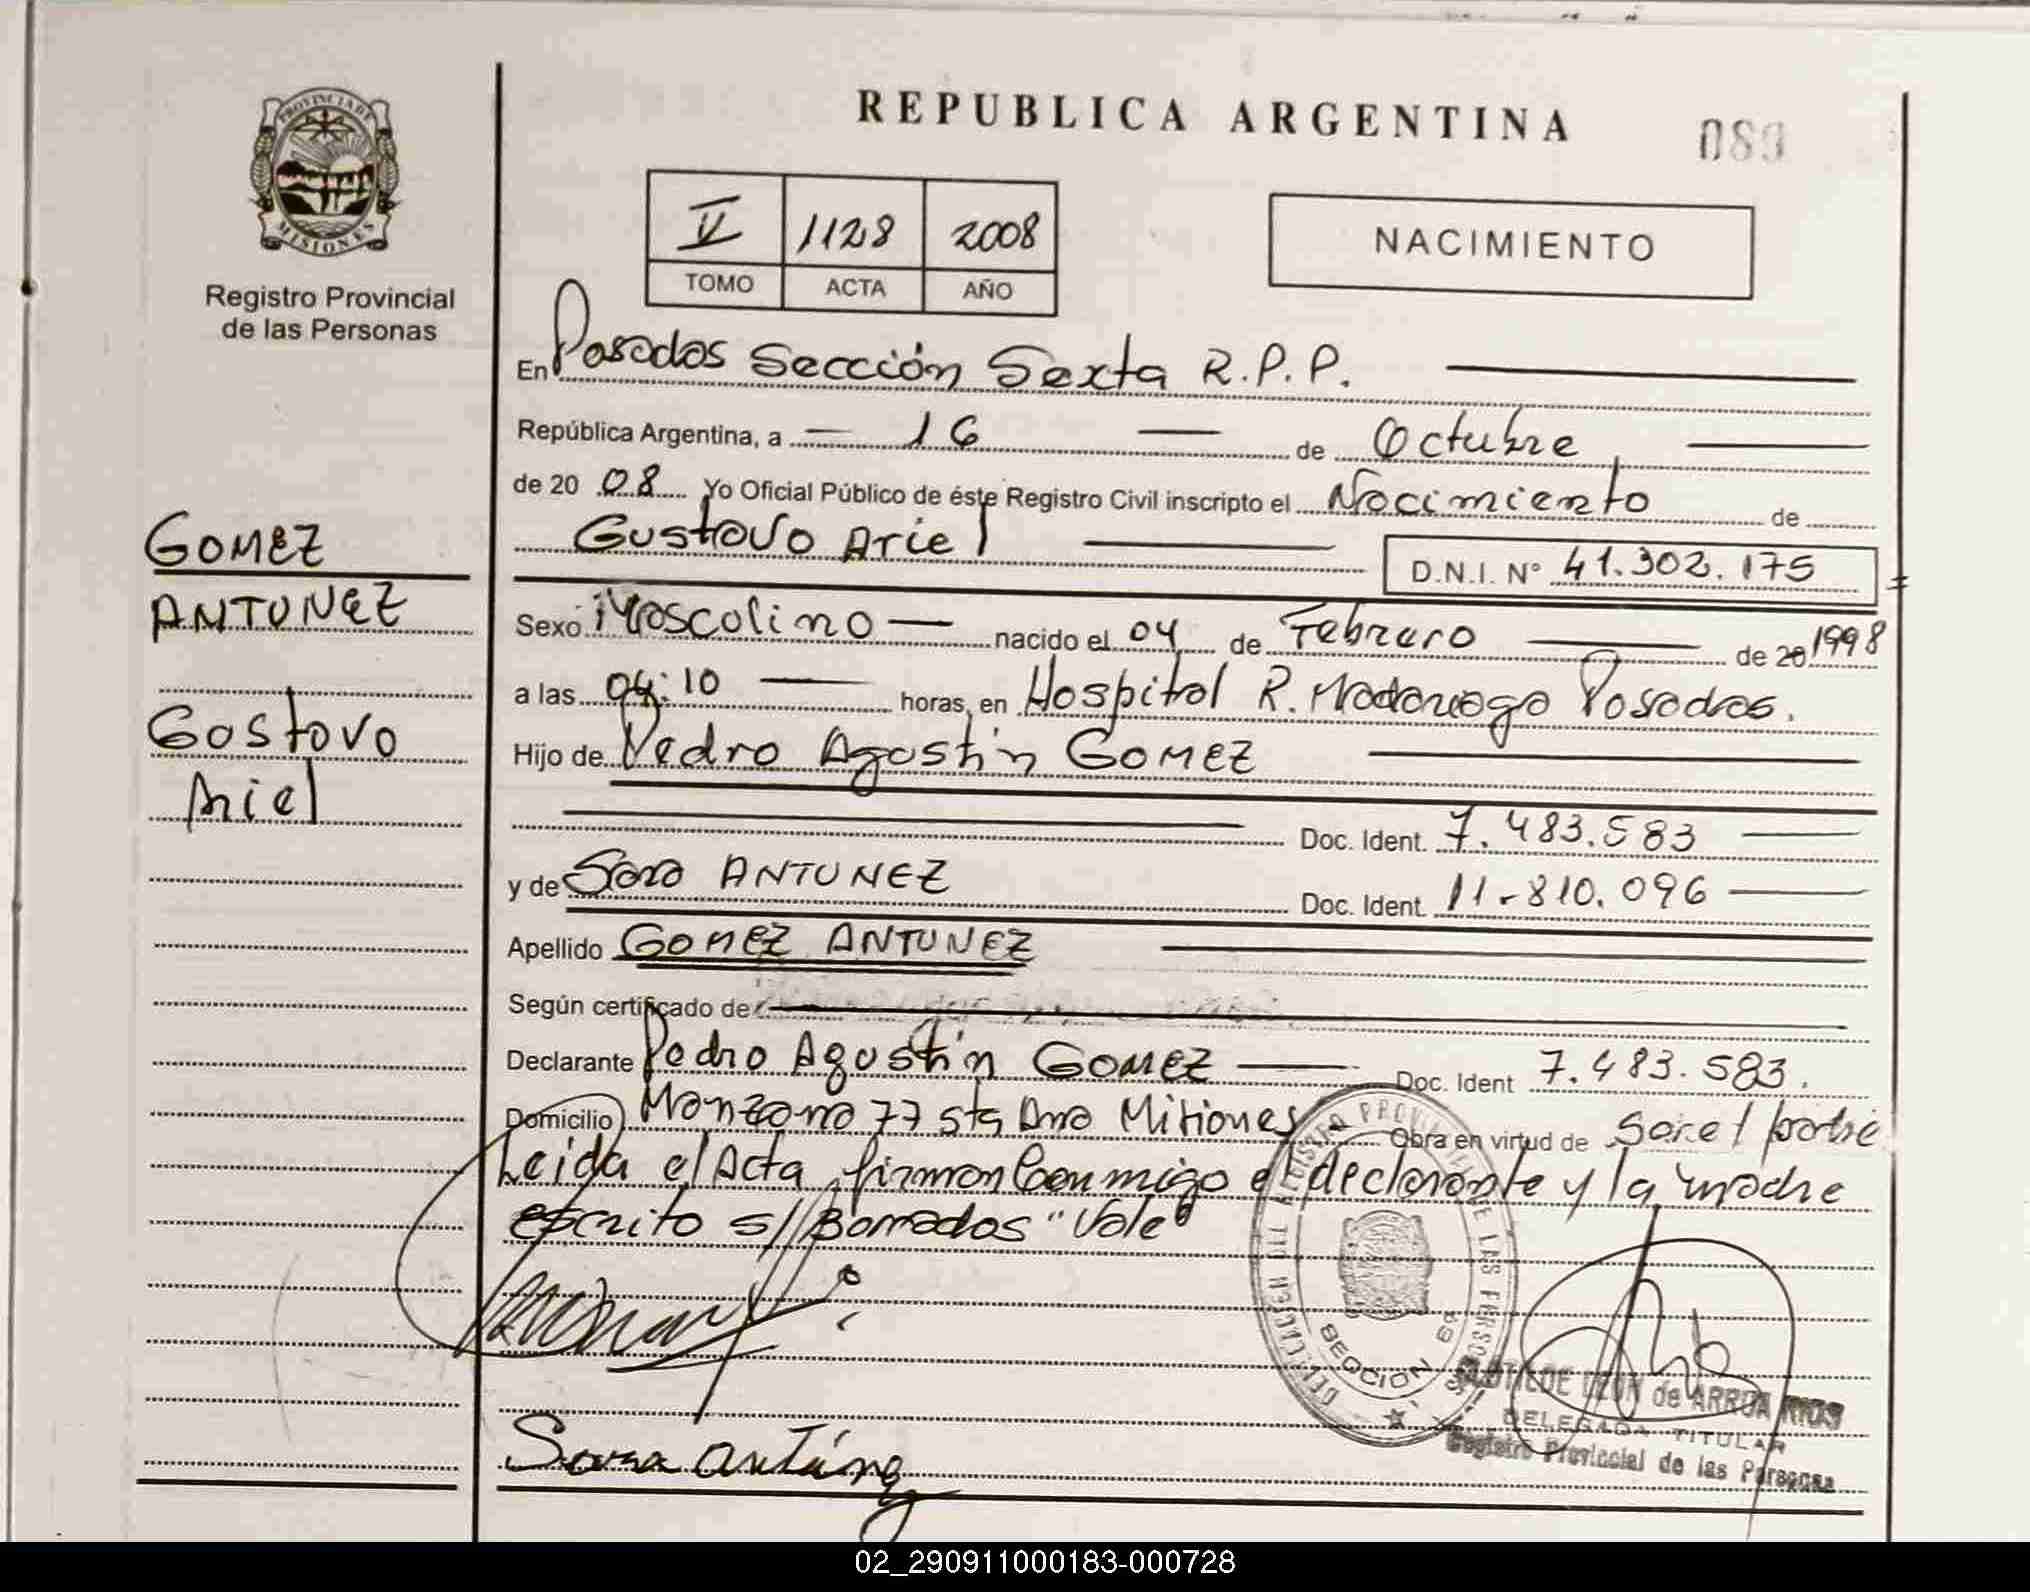 REPUBLICA ARGENTINA
089
PROVINCIA DE
MISIONES
Registro Provincial
de las Personas
V 1128 2008
TOMO ACTA AÑO
NACIMIENTO
En Posadas Sección Sexta R.P.P.
República Argentina, a 16 de Octubre
de 20 08 Yo Oficial Público de éste Registro Civil inscripto el Nacimiento de
Gustavo Ariel
D.N.I. N° 41.302.175
GOMEZ
ANTUNEZ
Gustavo
Ariel
Sexo Masculino nacido el 04 de Febrero de 20 1998
a las 04:10 horas, en Hospital R. Madariaga Posadas.
Hijo de Pedro Agustín GOMEZ
Doc. Ident. 7.483.583
y de Sara ANTUNEZ Doc. Ident. 11-810.096
Apellido GOMEZ ANTUNEZ
Según certificado de
Declarante Pedro Agustín GOMEZ Doc. Ident 7.483.583.
Domicilio Manzana 77 Sta Ana Misiones Obra en virtud de Ser el padre
Leida el Acta firman Conmigo el declarante y la madre
escrito s/ Borrados "Vale"
REGISTRO PROVINCIAL DE LAS PERSONAS
SECCION 6a
Sara Antúnez
CLOTILDE LEON de ARRUA RIOS
DELEGADA TITULAR
Registro Provincial de las Personas
02_290911000183-000728